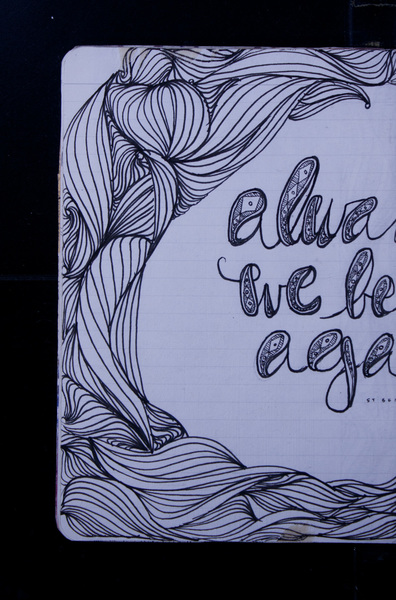 alwa
we be
aga
ST